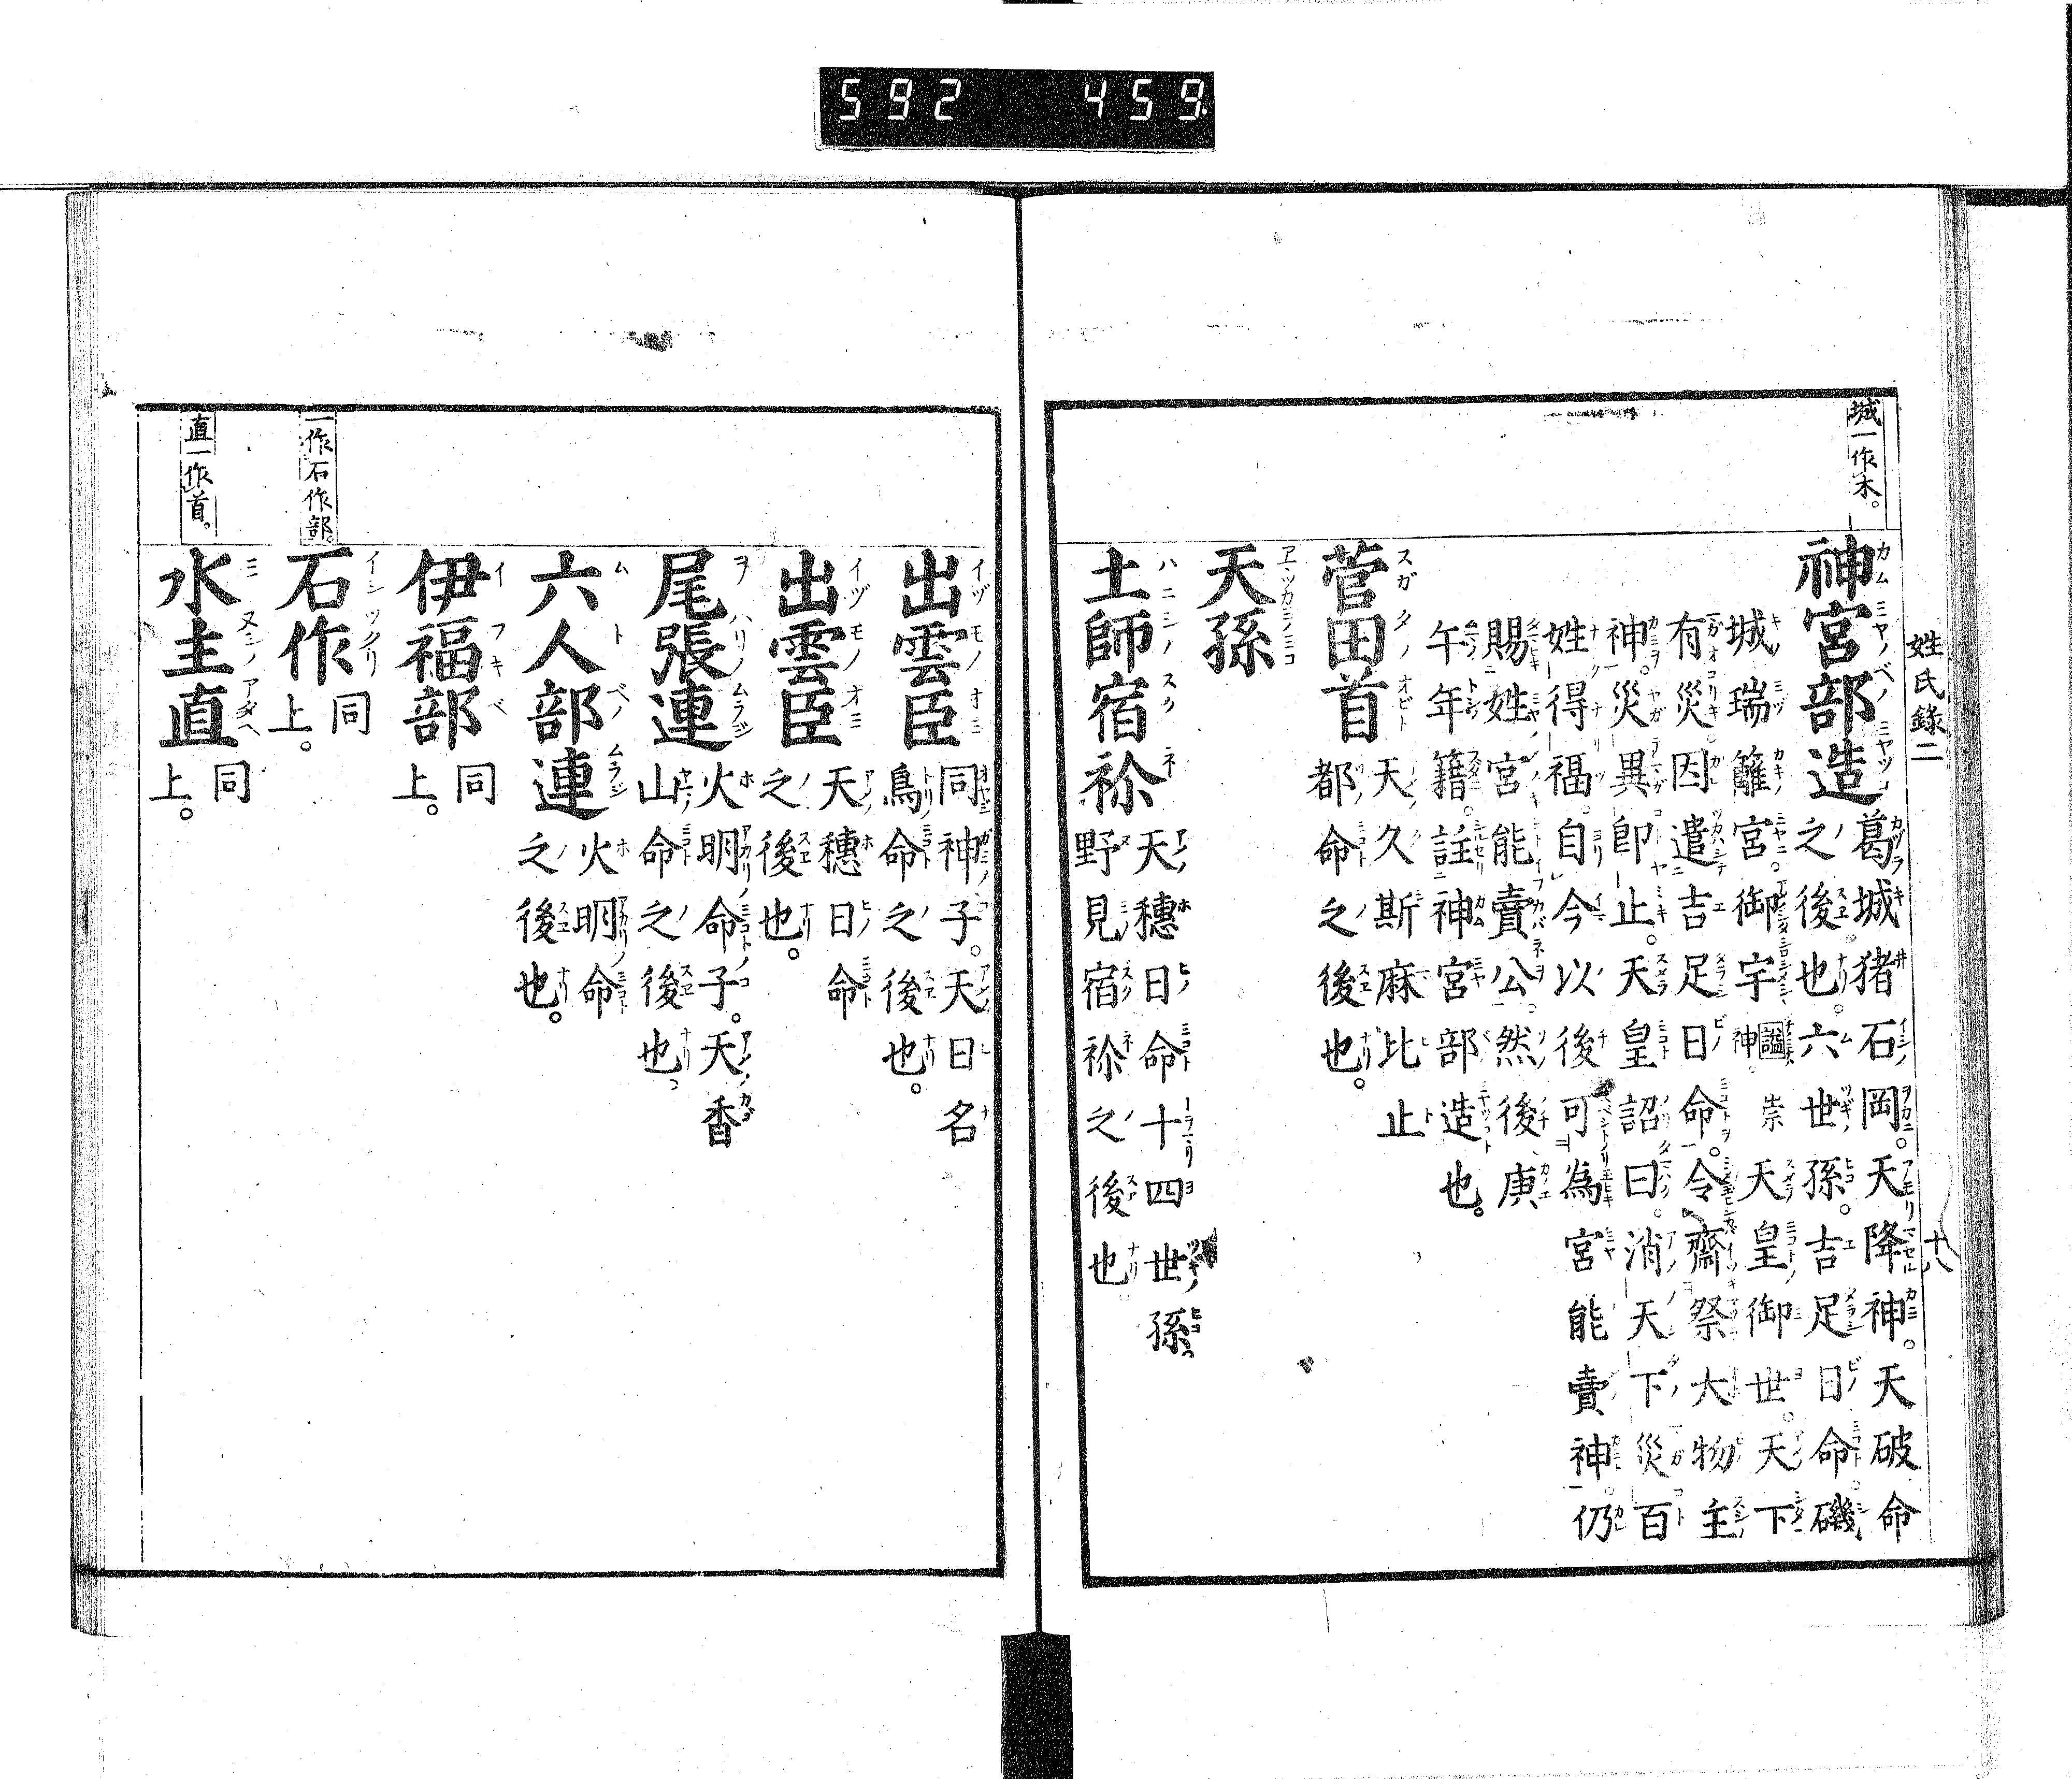 592 459
姓氏錄二
十八
城一作木。
神宮部造 葛城猪石岡。天降神。天破命
之後也。六世孫。吉足日命。磯
城瑞籬宮御宇 諡崇神 天皇御世。天下
有災。因遣吉足日命。令齋祭大物主
神。災異卽止。天皇詔曰。消天下災。百
姓得福。自今以後可為宮能賣神。仍
賜姓宮能賣公。然後庚
午年籍。註神宮部造也。
菅田首 天久斯麻比止
都命之後也。
天孫
土師宿祢 天穗日命十四世孫。
野見宿祢之後也
出雲臣 同神子。天日名
鳥命之後也。
出雲臣 天穗日命
之後也。
尾張連 火明命子。天香
山命之後也。
六人部連 火明命
之後也。
伊福部 同
上。
一作石作部。
石作 同
上。
直一作首。
水主直 同
上。